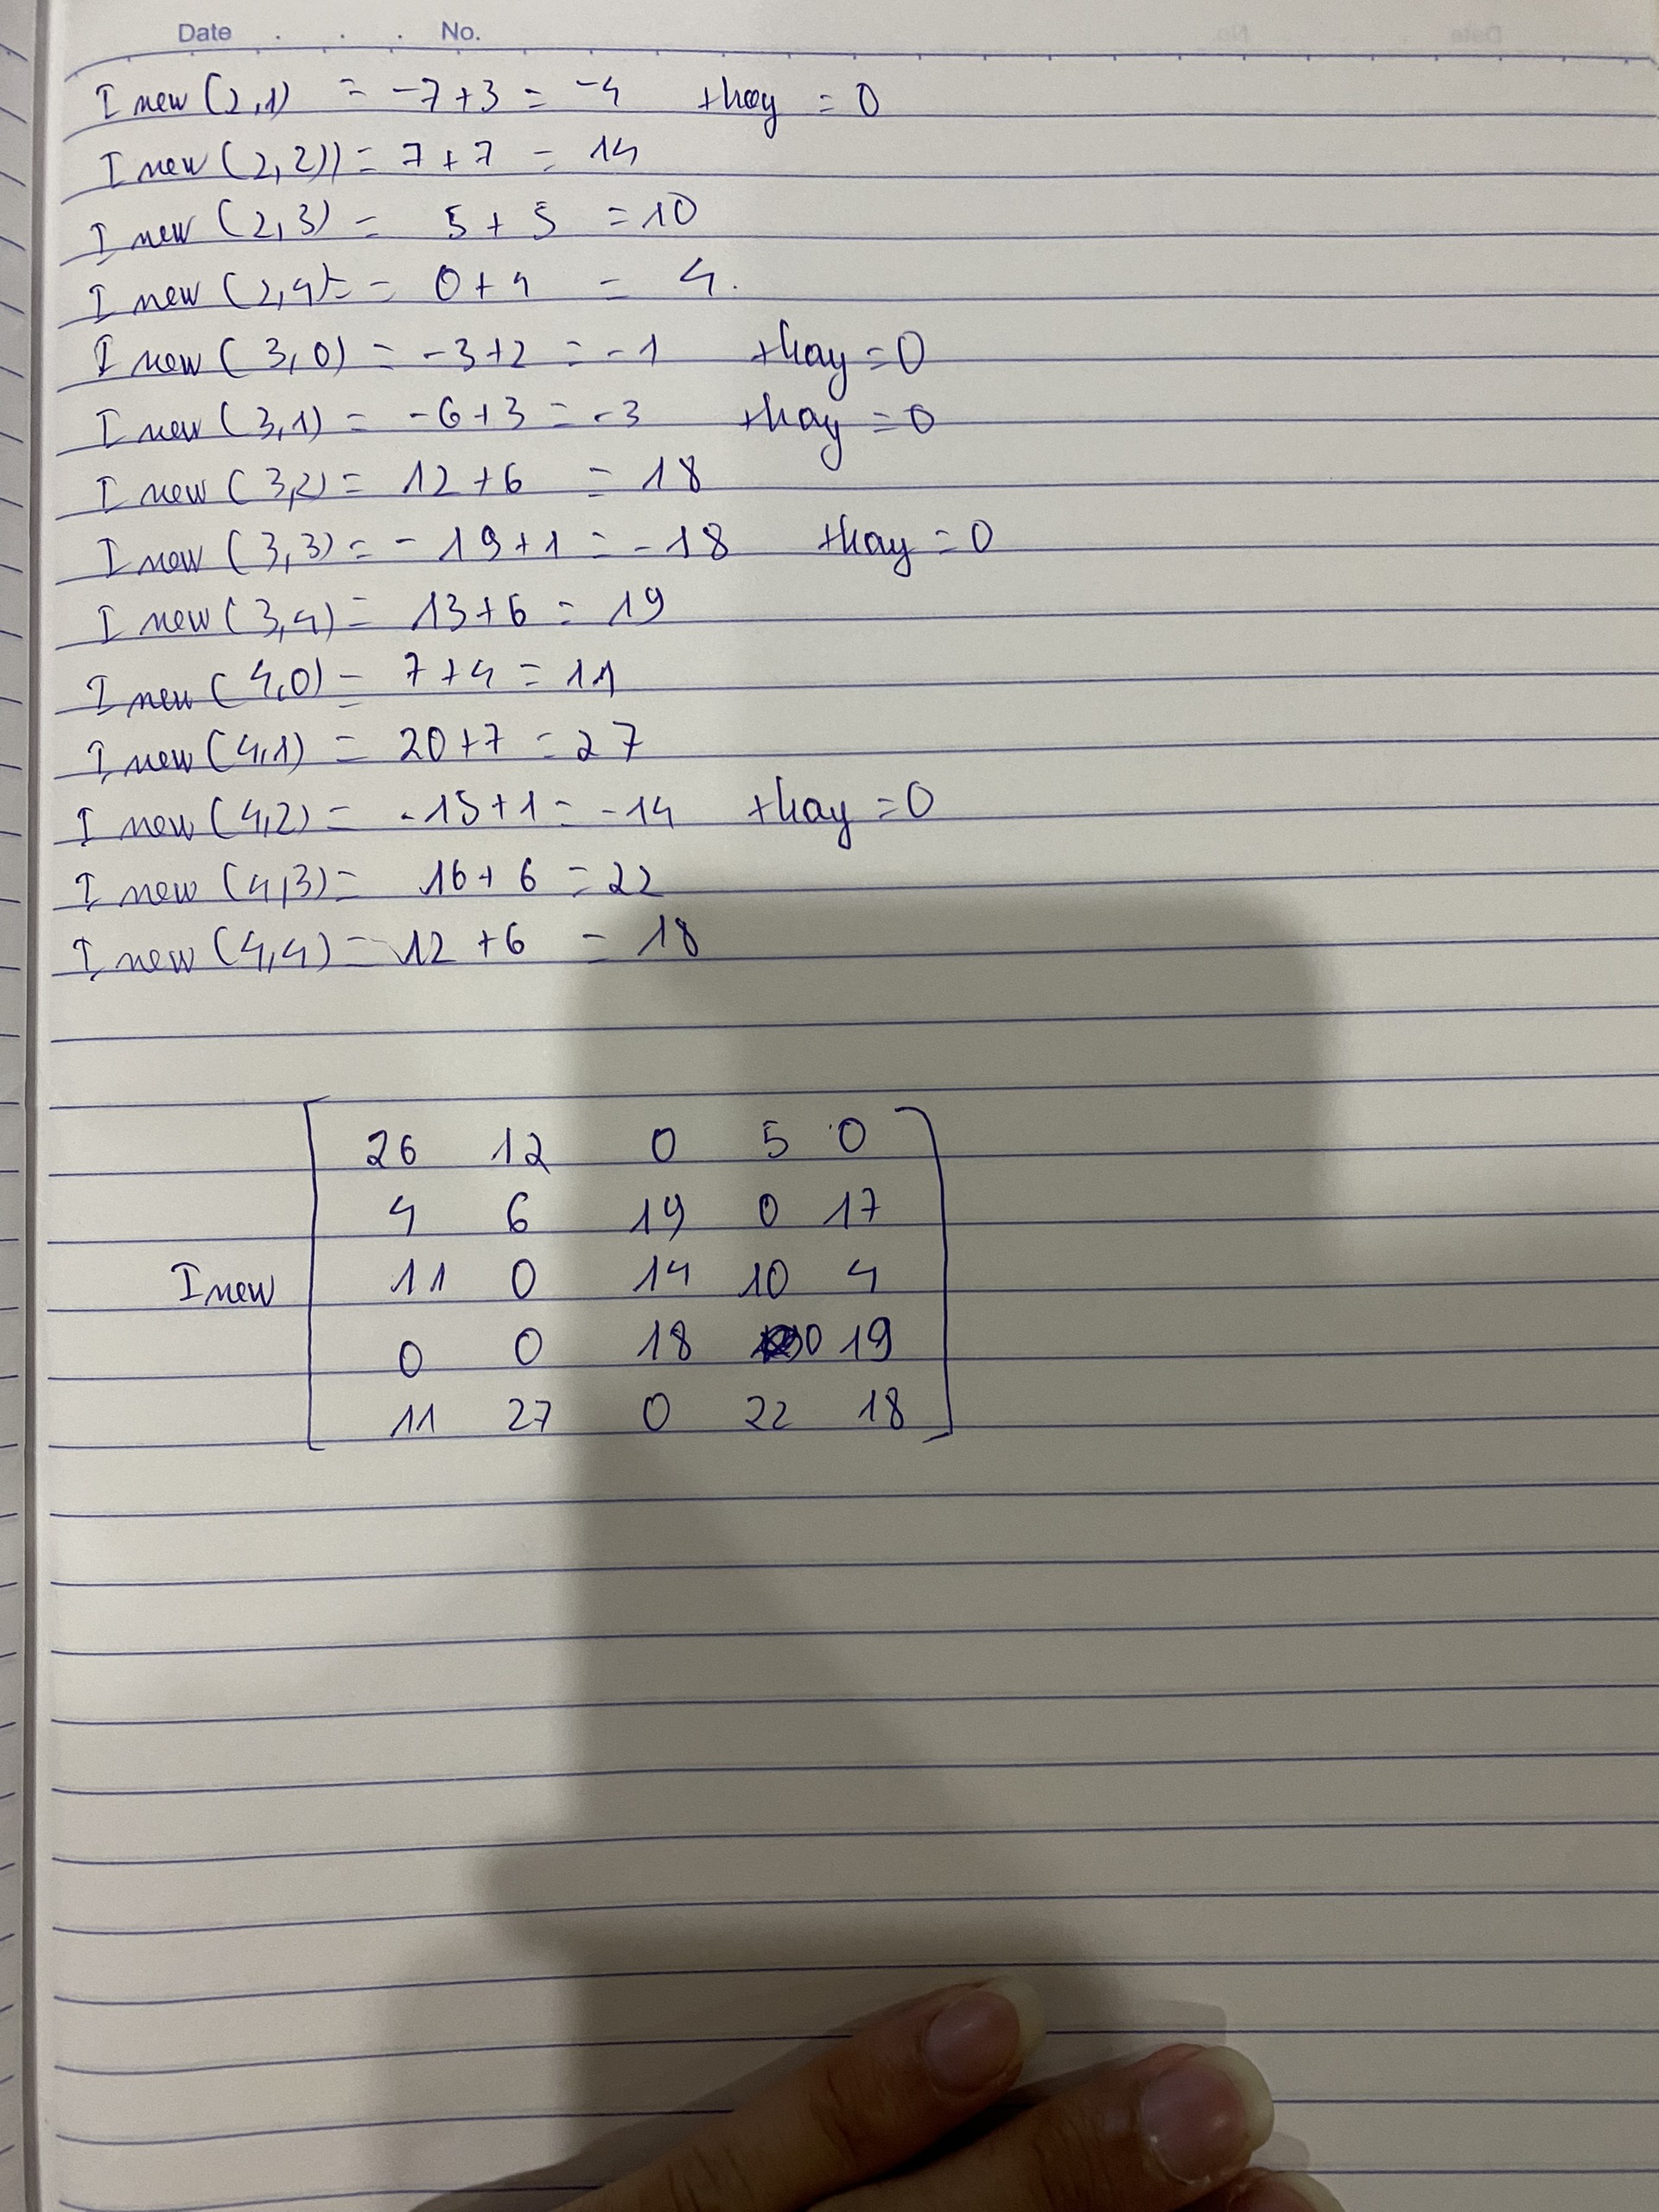 Date . . . No.
I new (2,1) = -7+3 = -4 thay = 0
I new (2,2)) = 7+7 = 14
I new (2,3) = 5+5 = 10
I new (2,4) = = 0+4 = 4.
I new (3,0) = -3+2 = -1 thay = 0
I new (3,1) = -6+3 = -3 thay = 0
I new (3,2) = 12+6 = 18
I new (3,3) = -19+1 = -18 thay = 0
I new (3,4) = 13+6 = 19
I new (4,0) = 7+4 = 11
I new (4,1) = 20+7 = 27
I new (4,2) = -15+1 = -14 thay = 0
I new (4,3) = 16+6 = 22
I new (4,4) = 12+6 = 18
26 12 0 5 0
4 6 19 0 17
I new 11 0 14 10 4
0 0 18 0 19
11 27 0 22 18